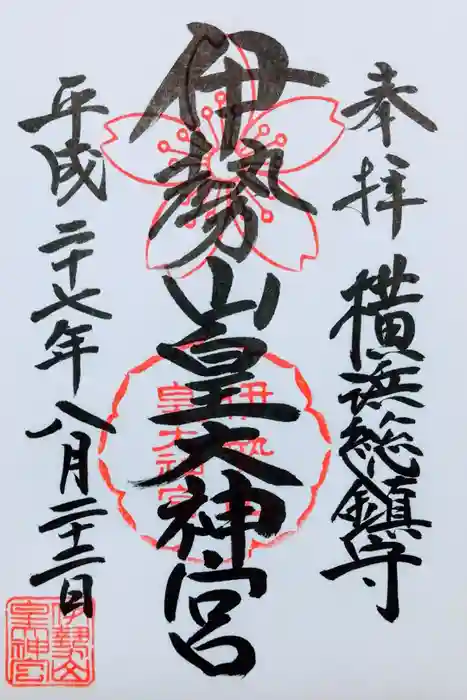 奉拝
横浜総鎮守
伊勢山皇大神宮
平成二十七年八月二十二日
伊勢山
皇大神宮
伊勢山
皇神宮